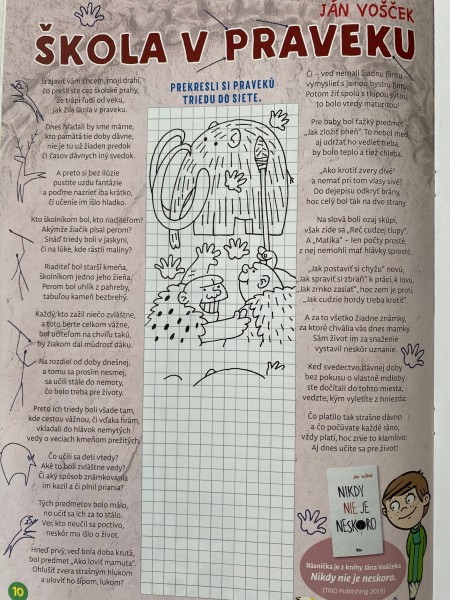 JÁN VOŠČEK
ŠKOLA V PRAVEKU
Ja zjaviť vám chcem, moji drahí,
čo prešli ste cez školské prahy,
že trápi ľudí od veku,
jak žila škola v praveku.
Dnes hľadali by sme márne,
kto pamätá tie doby dávne,
nie je tu už žiaden predok
či časov dávnych iný svedok.
A preto si bez ilúzie
pustite uzdu fantázie
a poďme nazrieť iba krátko,
či učenie im išlo hladko.
Kto školníkom bol, kto riaditeľom?
Akýmže žiačik písal perom?
Snáď triedy boli v jaskyni,
či na lúke, kde rástli maliny?
Riaditeľ bol starší kmeňa,
školníkom jedno jeho žieňa.
Perom bol uhlík z pahreby,
tabuľou kameň bezbrehý.
Každý, kto zažil niečo zvláštne,
a toto berte celkom vážne,
bol učiteľom na chvíľu takú,
by žiakom dal múdrosť ďaku.
Na rozdiel od doby dnešnej,
a tomu sa prosím nesmej,
sa učili stále do nemoty,
čo bolo treba pre životy.
Preto ich triedy boli všade tam,
kde cestou vážnou, či vďaka hrám,
vkladali do hlávok nemytých
vedy o veciach kmeňom prežitých.
Čo učili sa deti vtedy?
Aké to boli zvláštne vedy?
Či aký spôsob známkovania
im kazil a či plnil priania?
Tých predmetov bolo málo,
no učiť sa ich za to stálo.
Ver, kto neučil sa poctivo,
neskôr mu išlo o život.
Hneď prvý, veď bola doba krutá,
bol predmet „Ako loviť mamuta".
Ohlušiť zvera strašným hlukom
a uloviť ho šípom, lukom?
10
PREKRESLI SI PRAVEKÚ
TRIEDU DO SIETE.
Či – veď nemali žiadnu flintu
vymyslieť s jamou bystrú fintu.
Potom žiť spolu s tlupou sýtou,
to bolo vtedy maturitou!
Pre baby bol ťažký predmet
„Jak zložiť oheň". To nebol med,
aj udržať ho vedieť treba,
by bolo teplo a tiež chleba.
„Ako krotiť zvery divé"
a nemať pri tom vlasy sivé?
Do dejepisu odkryť brány,
hoc celý bol tak na dve strany.
Na slová boli ozaj skúpi,
však zíde sa „Reč cudzej tlupy".
A „Matika" – len počty prosté,
z nej nemohli mať hlávky sprosté.
„Jak postaviť si chyžu" novú,
„Jak spraviť si zbraň" k práci, k lovu,
„Jak zrnko zasiať", hoc zem je proti,
„Jak cudzie hordy treba krotiť".
A za to všetko žiadne známky,
za ktoré chvália vás dnes mamky.
Sám život im za snaženie
vystavil neskôr uznanie.
Keď svedectvo dávnej doby
bez pokusu o vlastné mdloby
ste dočítali do tohto miesta,
vedzte, kým vyletíte z hniezda:
Čo platilo tak strašne dávno
a čo počúvate každé ráno,
vždy platí, hoc znie to klamlivo:
Aj dnes učíte sa pre život!
Ján Vošček
NIKDY
NIE JE
NESKORO
Básnička je z knihy Jána Voščeka
Nikdy nie je neskoro.
(TRIO Publishing 2019)